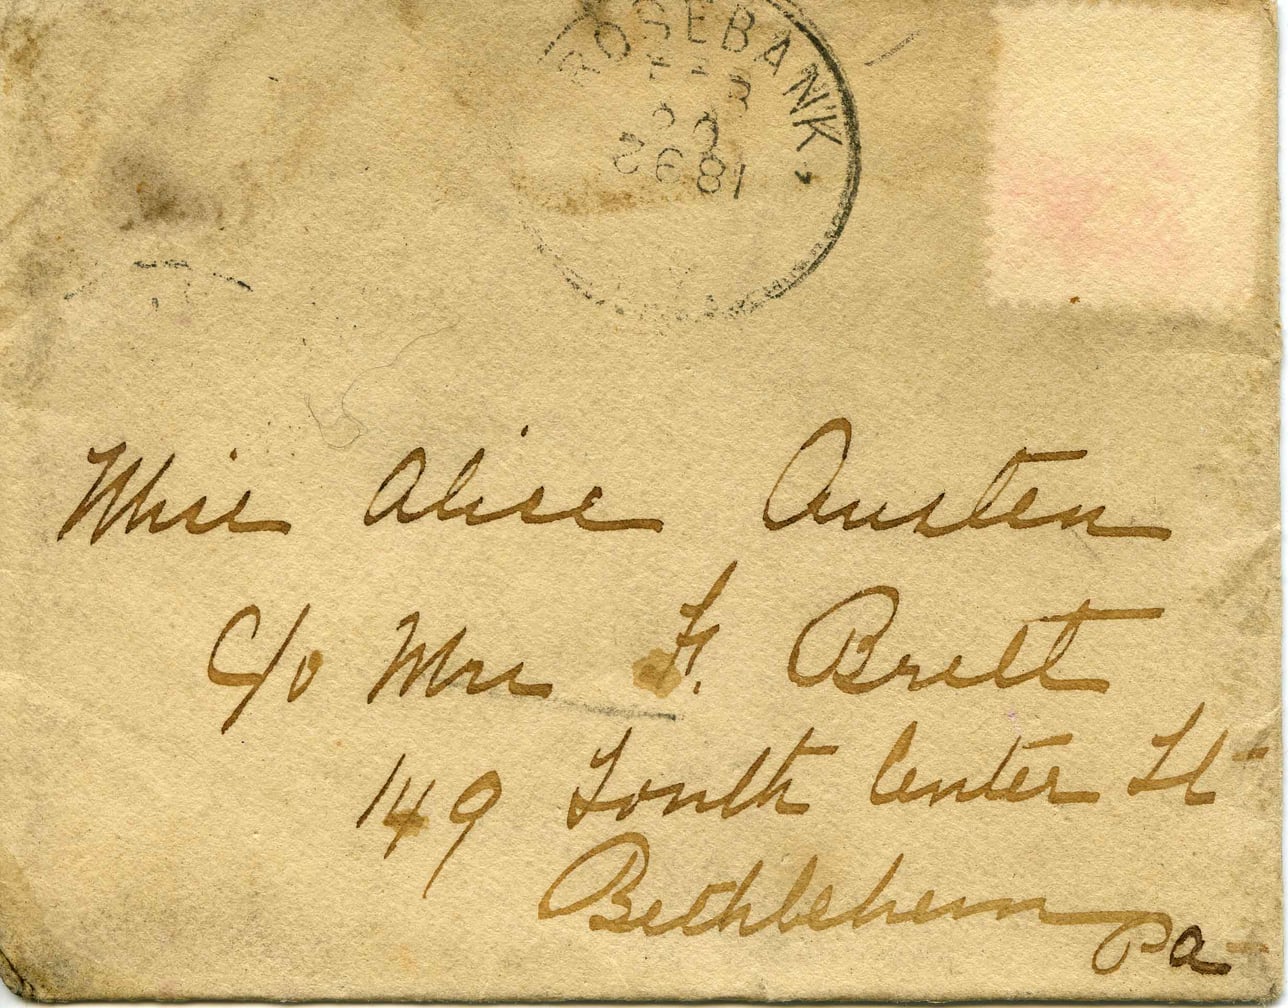 ROSEBANK,
FEB
1892
Miss Alice Austen
C/o Mrs F. Brett
149 South Center St
Bethlehem Pa